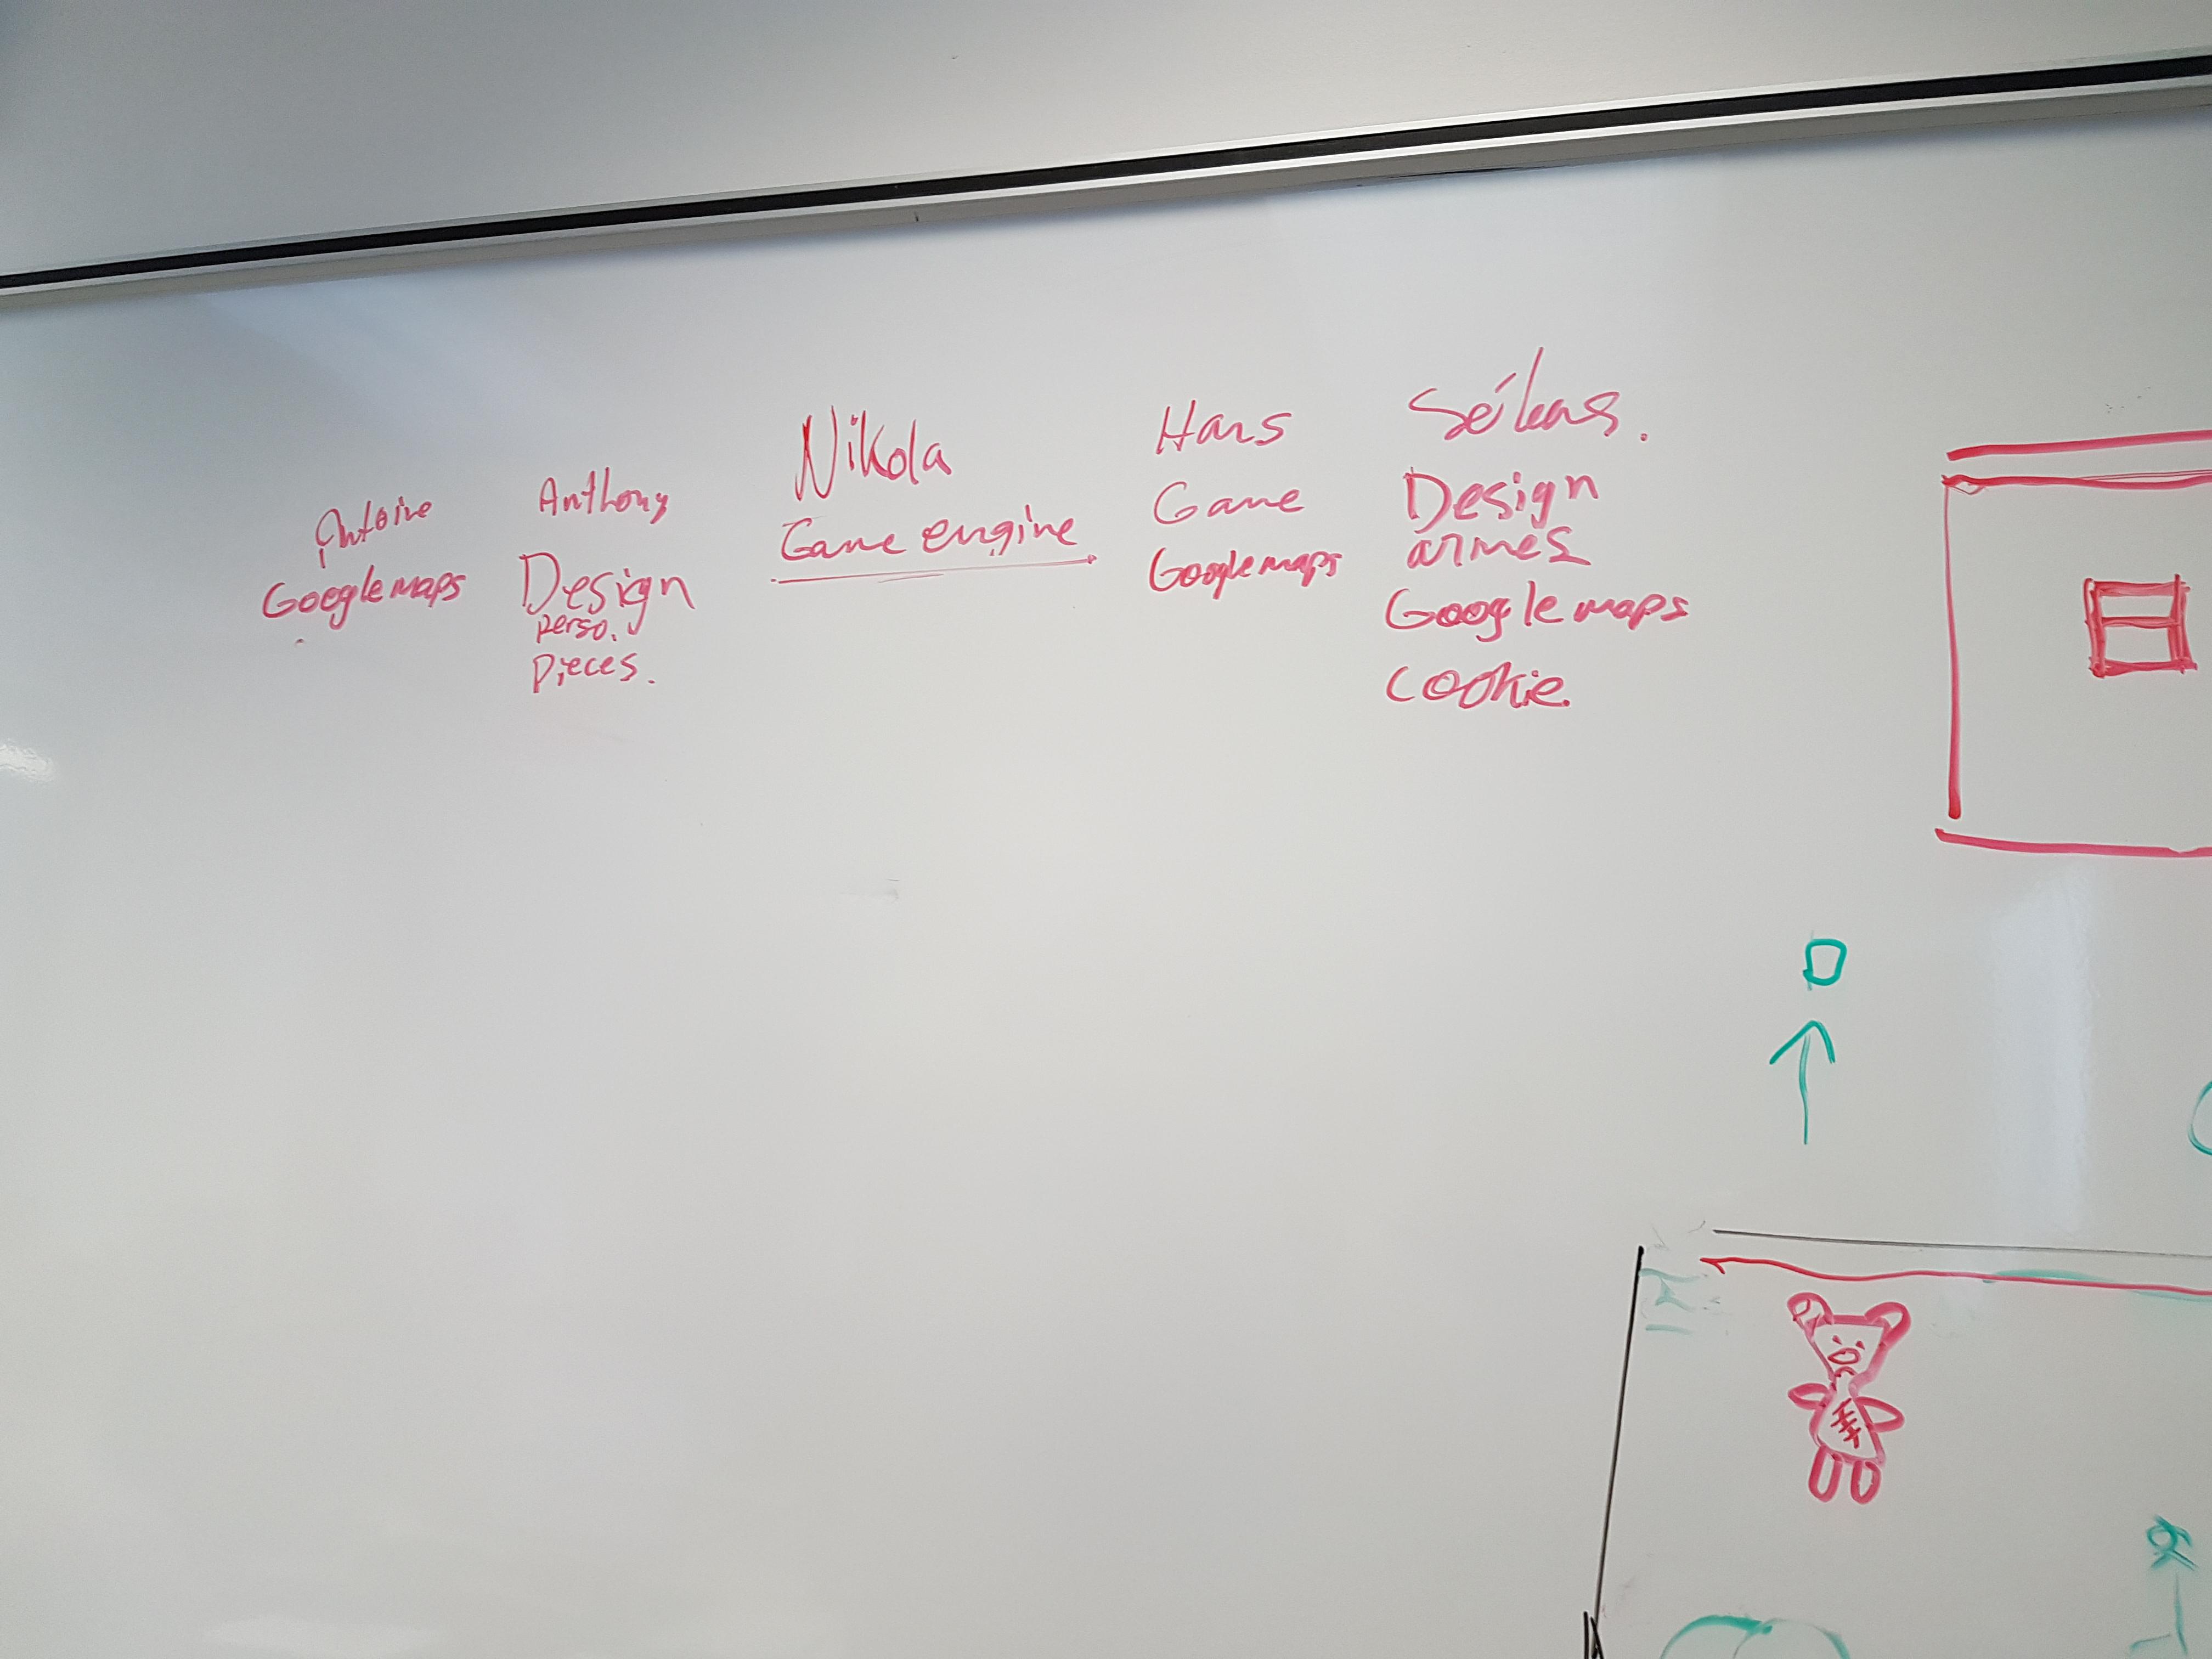 Antoine
Google maps
Anthony
Design
perso.
pieces.
Nikola
Game engine
Hans
Game
Google maps
Design
armes
Google maps
cookie.